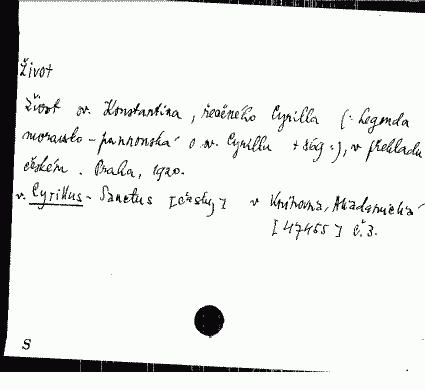 Život
Život sv. Konstantina, řečeného Cyrilla (: legenda
moravsko-pannonská o sv. Cyrillu + 869 :), v překladu
českém. Praha, 1920.
v. Cyrillus - Sanctus [česky] v Knihovna, Akademická
[47455] č. 3.
S